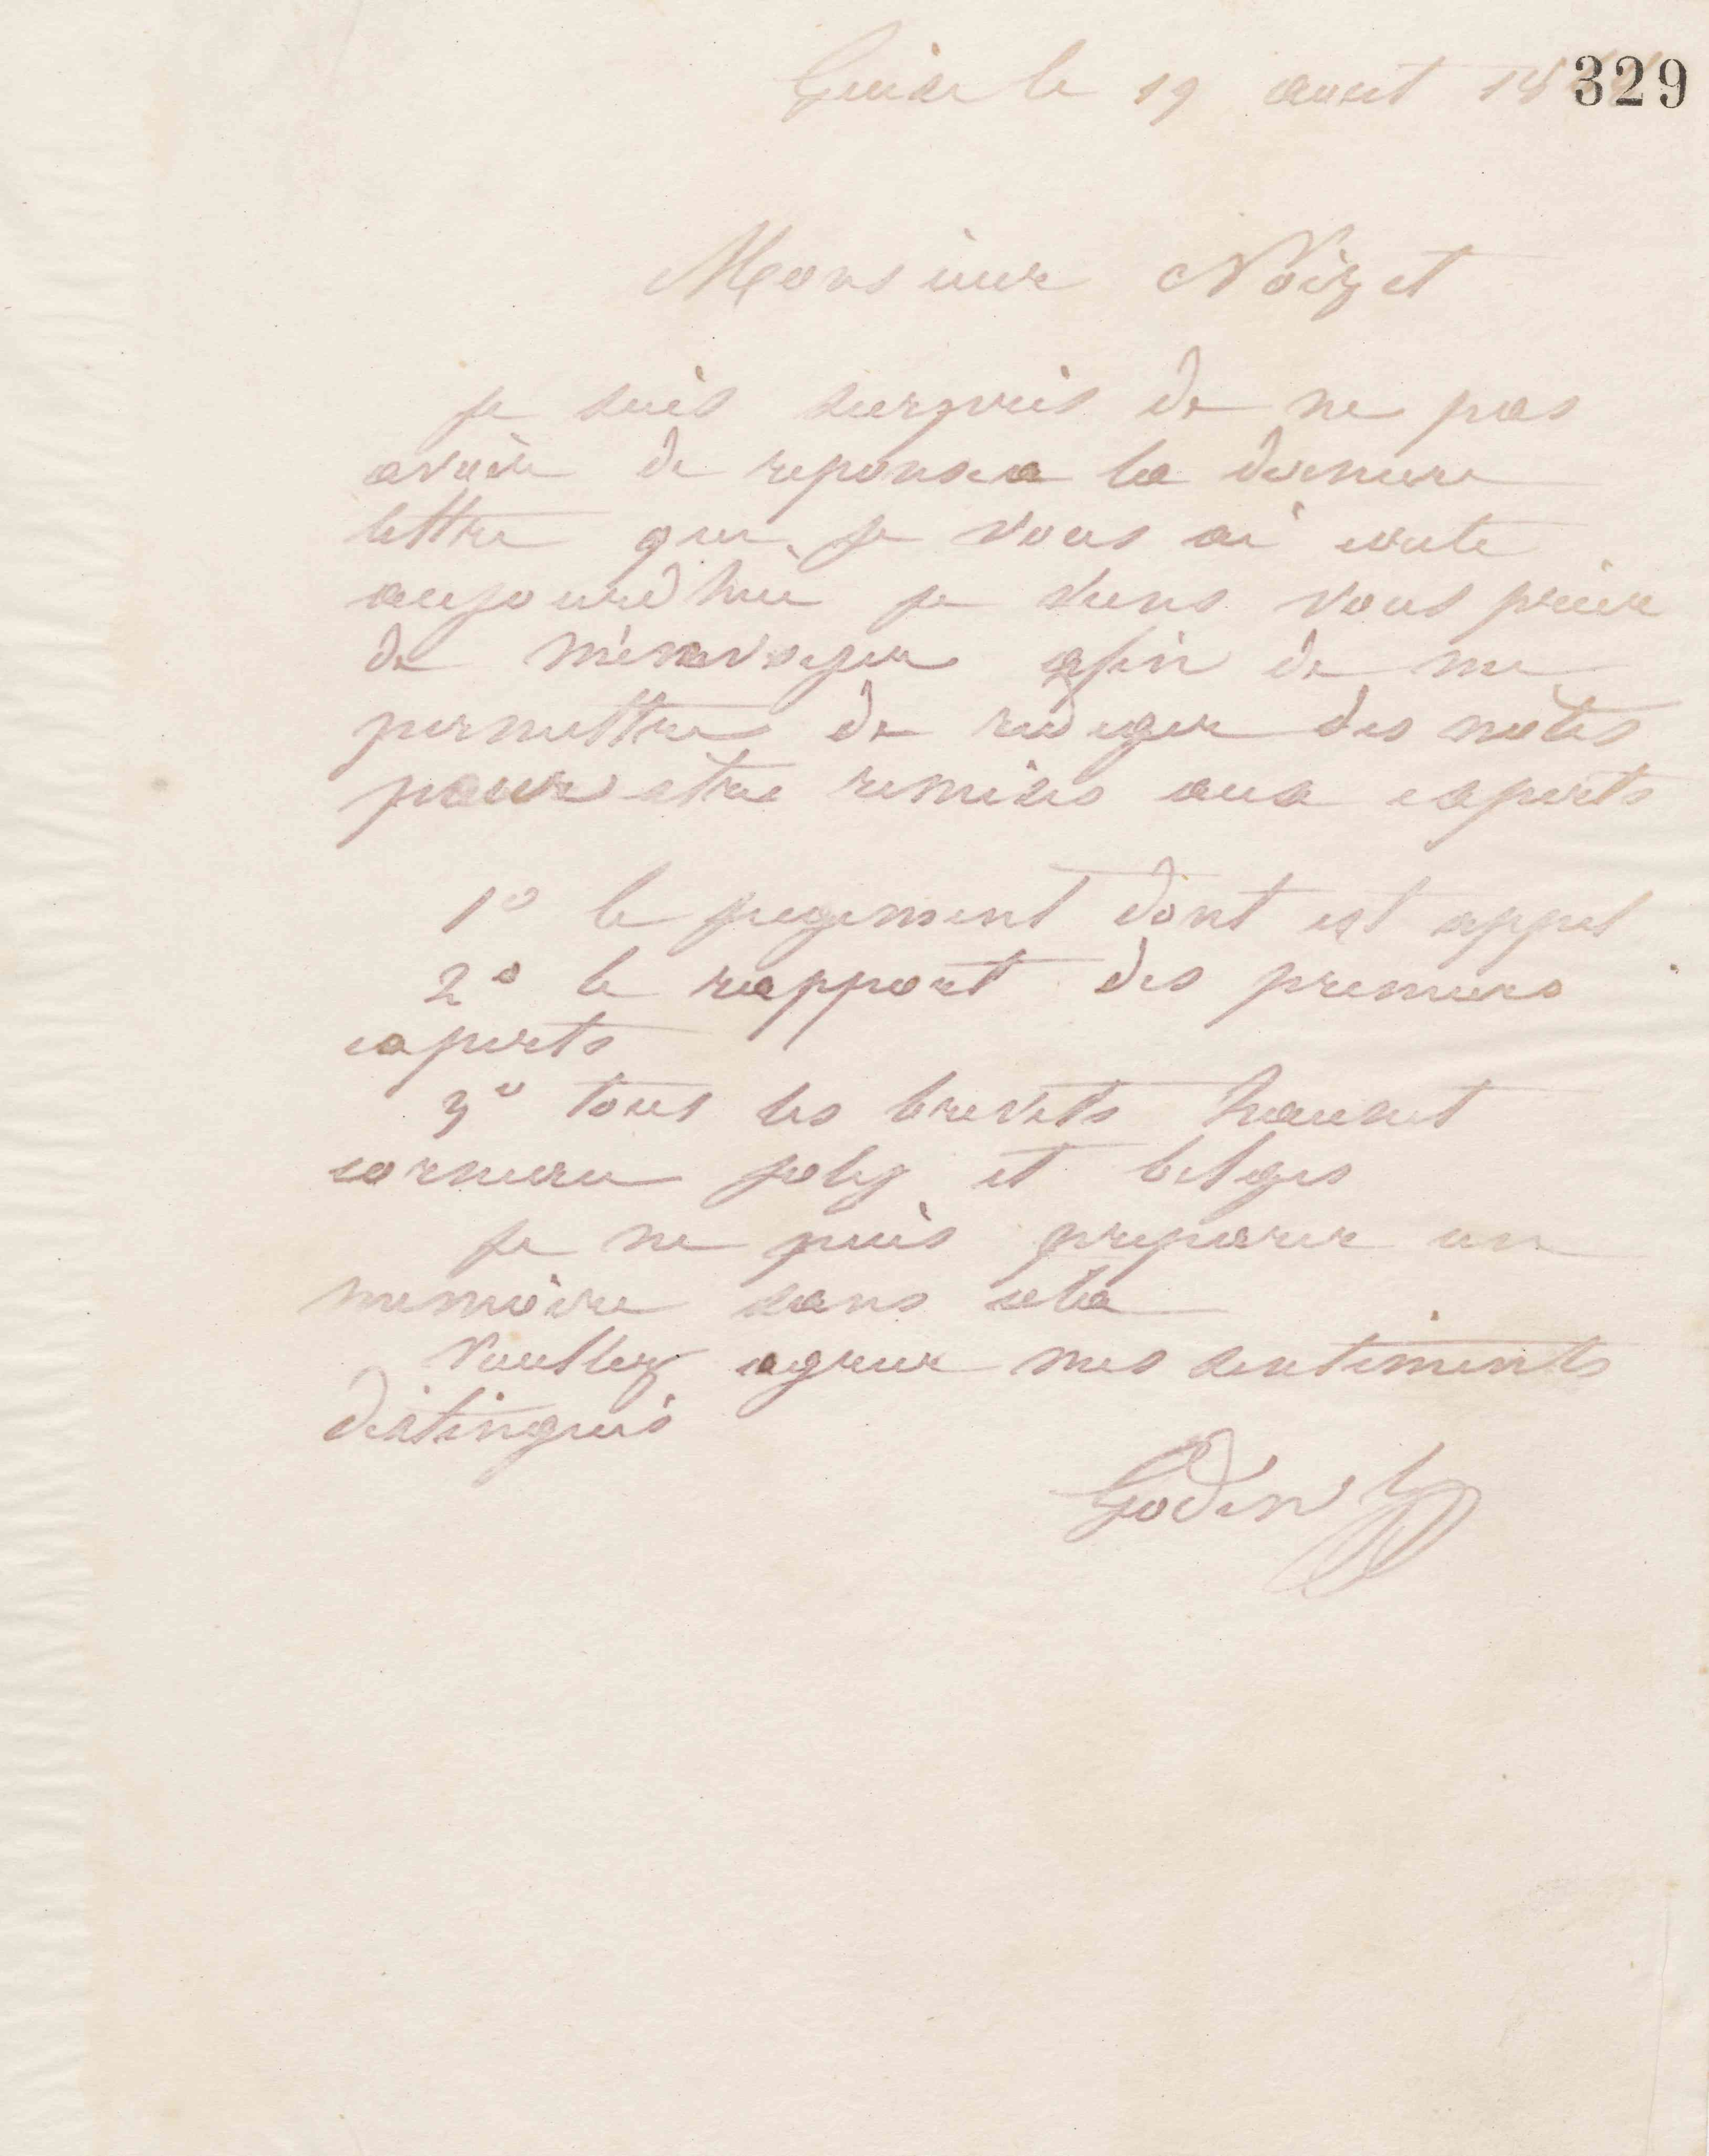 Guise le 19 aout 18
329
Monsieur Noizet
je suis surpris de ne pas
avoir de reponse a la derniere
lettre que je vous ai ecrite
aujourd hui je viens vous prier
de m'envoyer afin de me
permettre de rediger des notes
pour etre remises aux experts
1º le jugement dont est appel
2º le rapport des premiers
experts
3º tous les brevets
corneau joly et belges
je ne puis preparer un
memoire sans cela
Veuillez agreer mes sentiments
distingués
Godin